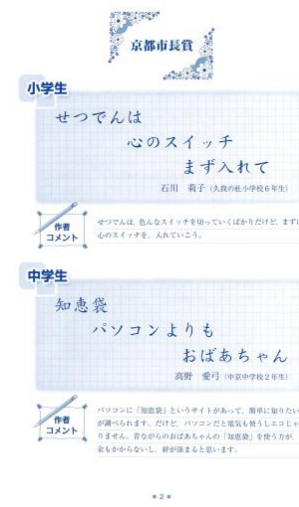 京都市長賞
小学生
せつでんは
心のスイッチ
まず入れて
石川 莉子（久我の杜小学校6年生）
作者
コメント
せつでんは、色んなスイッチを切っていくばかりだけど、まずは
心のスイッチを、入れていこう。
中学生
知恵袋
パソコンよりも
おばあちゃん
高野 愛弓（中京中学校2年生）
作者
コメント
パソコンに「知恵袋」というサイトがあって、簡単に知りたい
が調べられます。だけど、パソコンだと電気も使うしエコじゃ
りません。昔ながらのおばあちゃんの「知恵袋」を使う方が、
金もかからないし、絆が深まると思います。
2